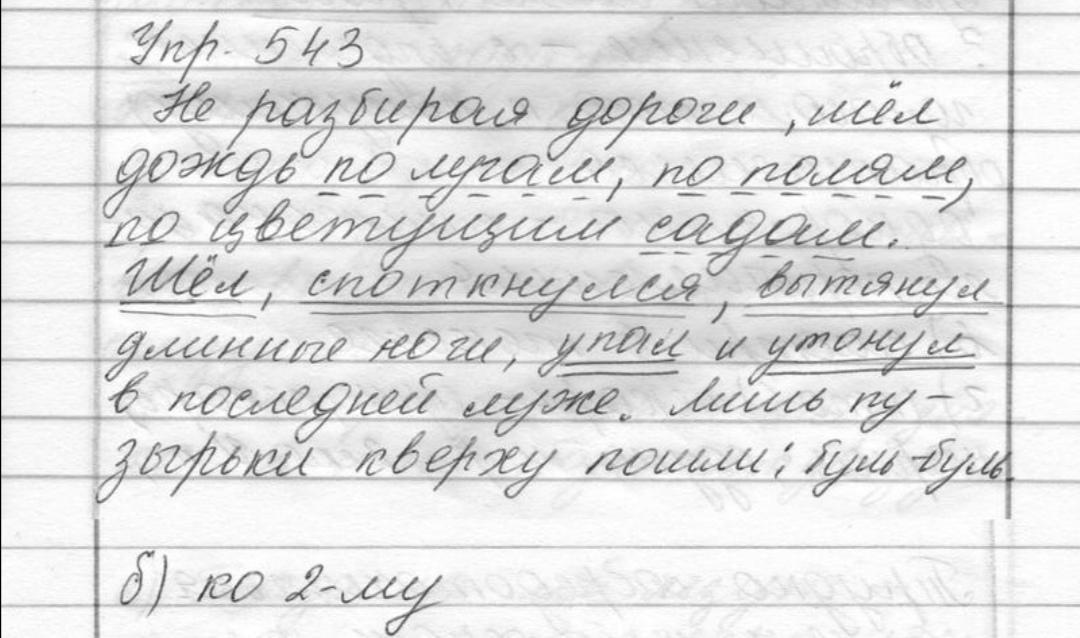 Упр. 543
Не разбирая дороги, шёл
дождь по лугам, по полям,
по цветущим садам.
Шёл, споткнулся, вытянул
длинные ноги, упал и утонул
в последней луже. Лишь пу-
зырьки кверху пошли: буль-буль.
б) ко 2-му